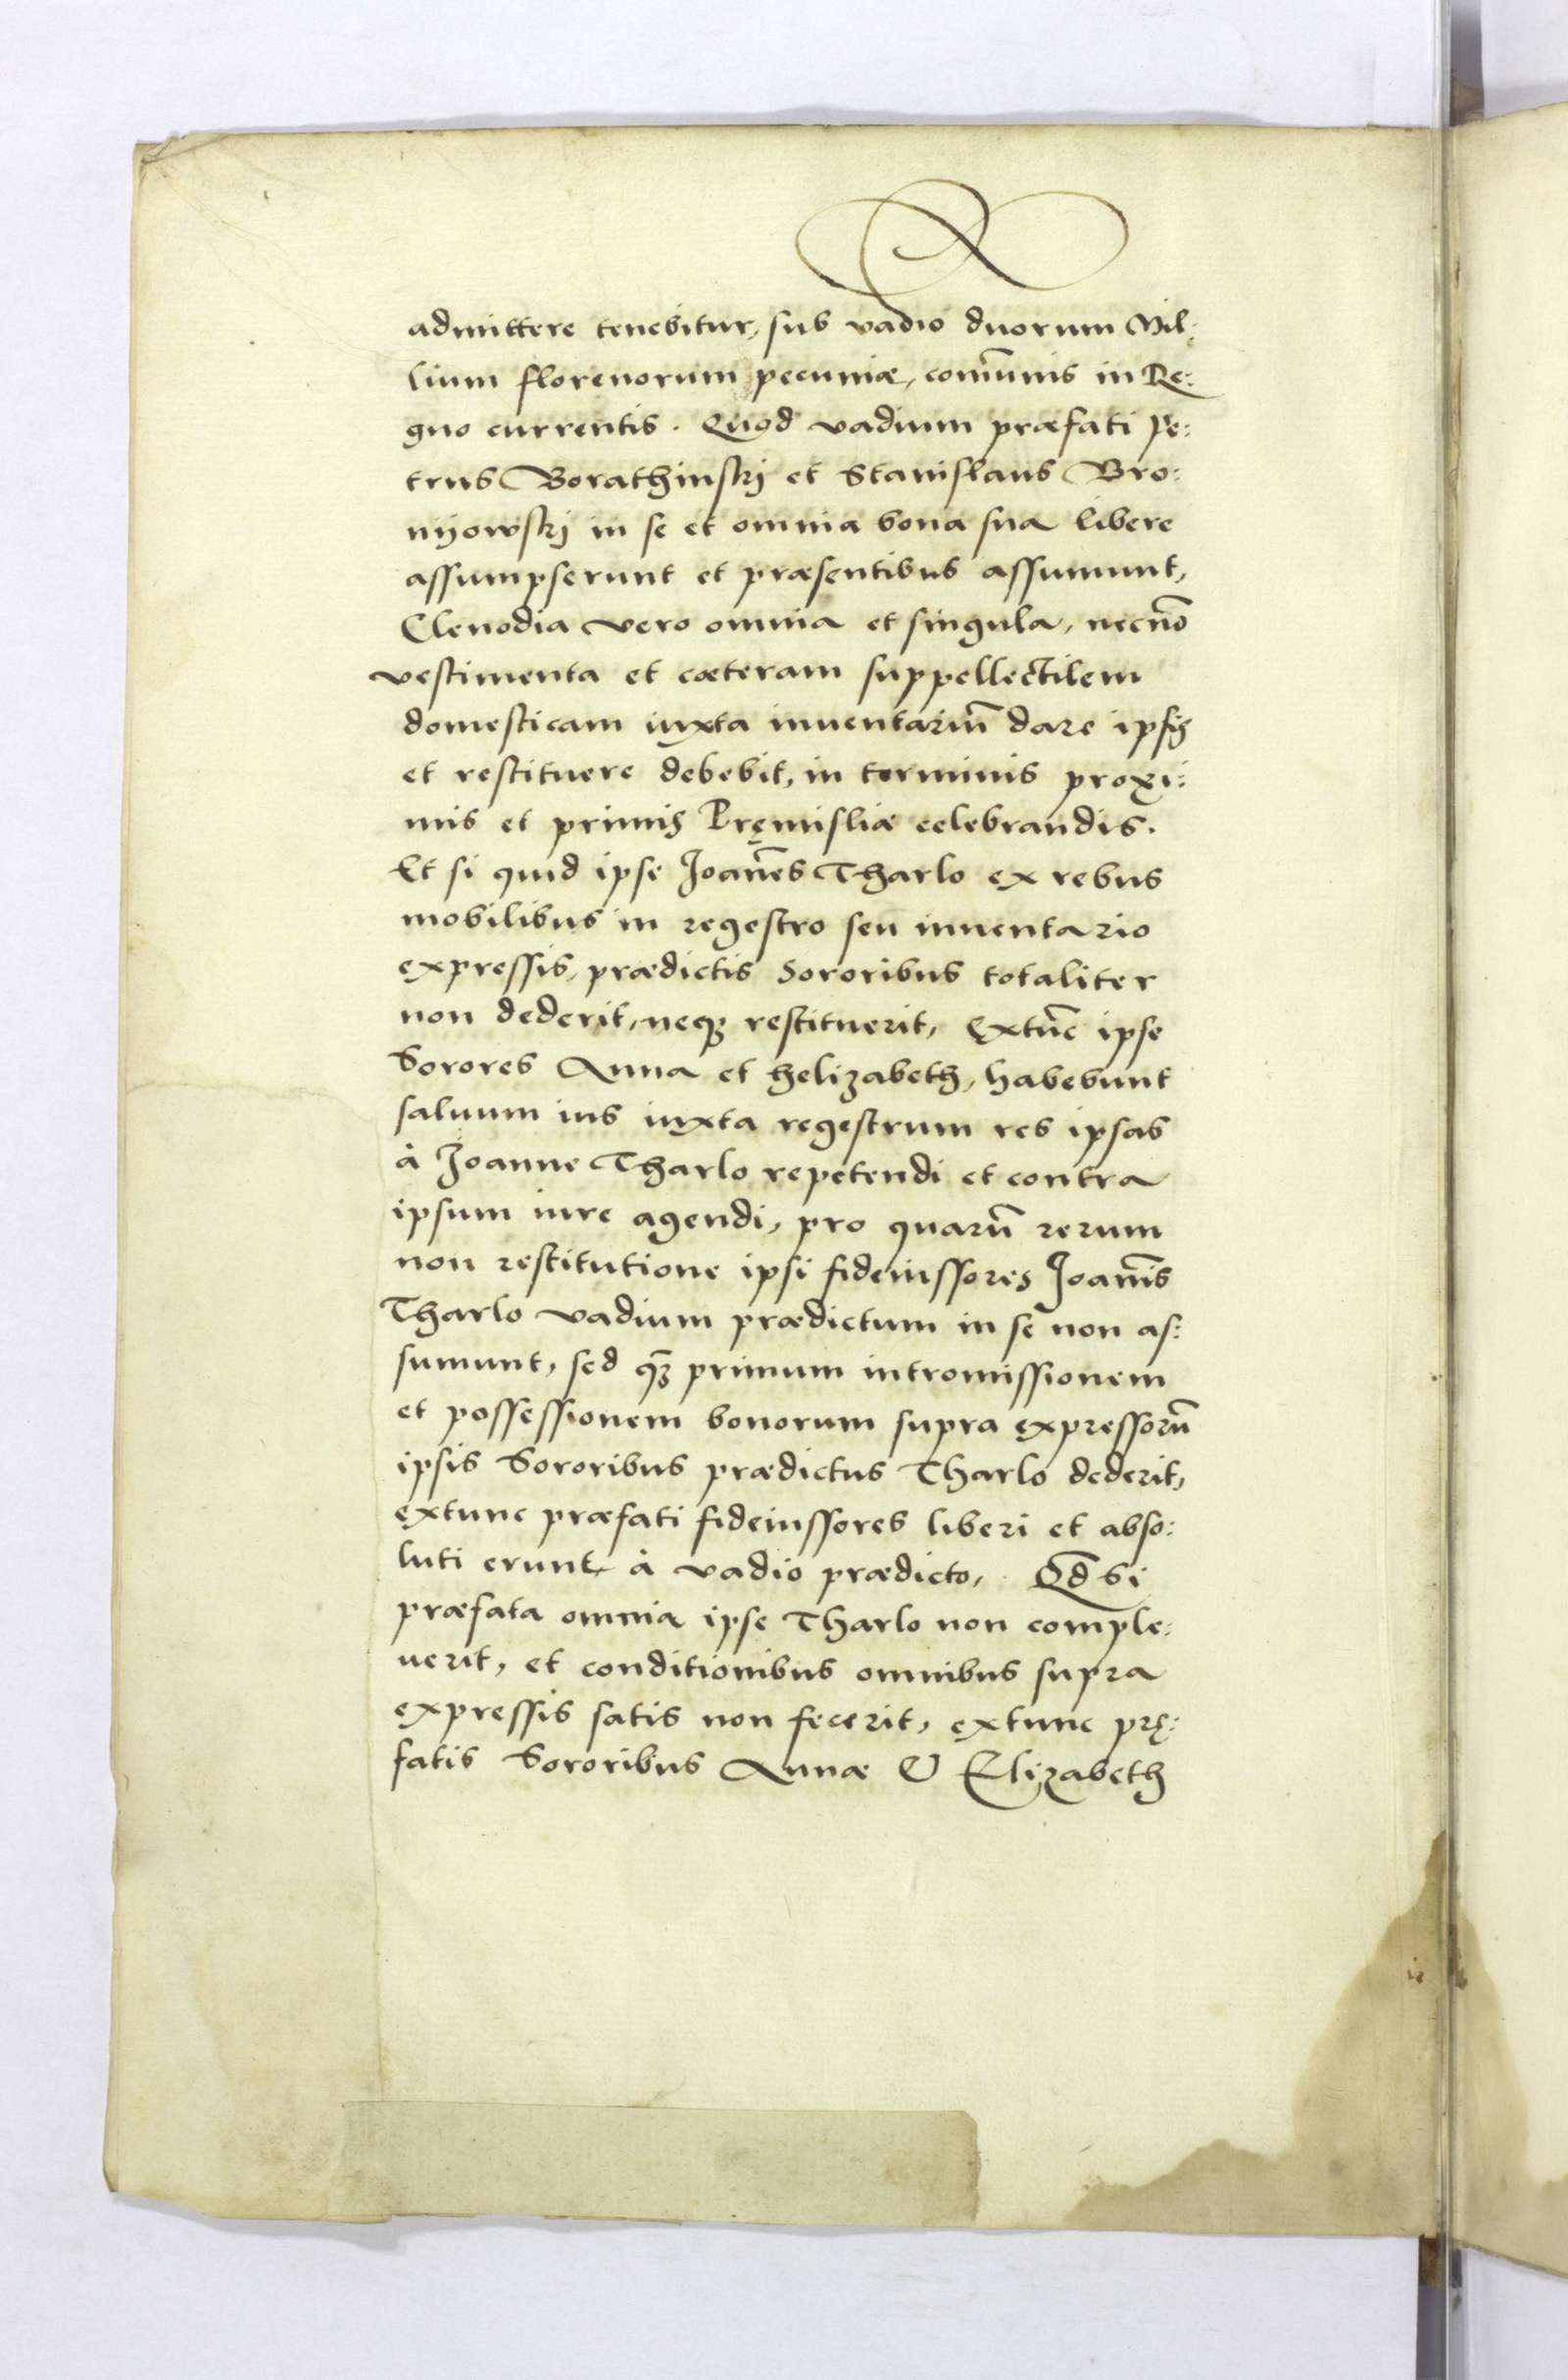 admittere tenebitur, sub vadio duorum Mil:
lium florenorum pecuniæ, com̄unis in Re:
gno currentis. Quod vadium præfati Pe:
trus Borathinskj et Stanislaus Bro:
nijowskj in se et omnia bona sua libere
assumpserunt et præsentibus assumunt,
Clenodia vero omnia et singula, necnō
vestimenta et cæteram suppellectilem
domesticam iuxta inuentariū dare ipsis
et restituere debebit, in terminis proxi:
mis et primis Pręmisliæ celebrandis.
Et si quid ipse Joan̄es Tharlo ex rebus
mobilibus in regestro seu inuentario
expressis, prædictis Sororibus totaliter
non dederit, neqȝ restituerit, Extūc ipse
Sorores Anna et helizabeth, habebunt
saluum ius iuxta regestrum res ipsas
à Joanne Tharlo repetendi et contra
ipsum iure agendi, pro quarū rerum
non restitutione ipsi fideiussores Joan̄is
Tharlo vadium prædictum in se non as:
sumunt, sed qȝ̄ primum intromissionem
et possessionem bonorum supra expressorū
ipsis Sororibus prædictus Tharlo dederit,
extunc præfati fideiussores liberi et abso:
luti erunt à vadio prædicto, Qd̄ si
præfata omnia ipse Tharlo non comple:
uerit, et conditionibus omnibus supra
expressis satis non fecerit, extunc prę:
fatis Sororibus Annæ & Elizabeth